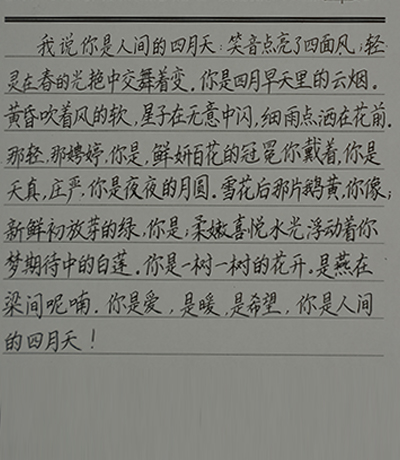 我说你是人间的四月天：笑音点亮了四面风；轻
灵在春的光艳中交舞着变。你是四月早天里的云烟。
黄昏吹着风的软，星子在无意中闪，细雨点洒在花前。
那轻，那娉婷，你是，鲜妍百花的冠冕你戴着，你是
天真，庄严，你是夜夜的月圆。雪花后那片鹅黄，你像；
新鲜初放芽的绿，你是；柔嫩喜悦水光浮动着你
梦期待中的白莲。你是一树一树的花开。是燕在
梁间呢喃。你是爱，是暖，是希望，你是人间
的四月天！